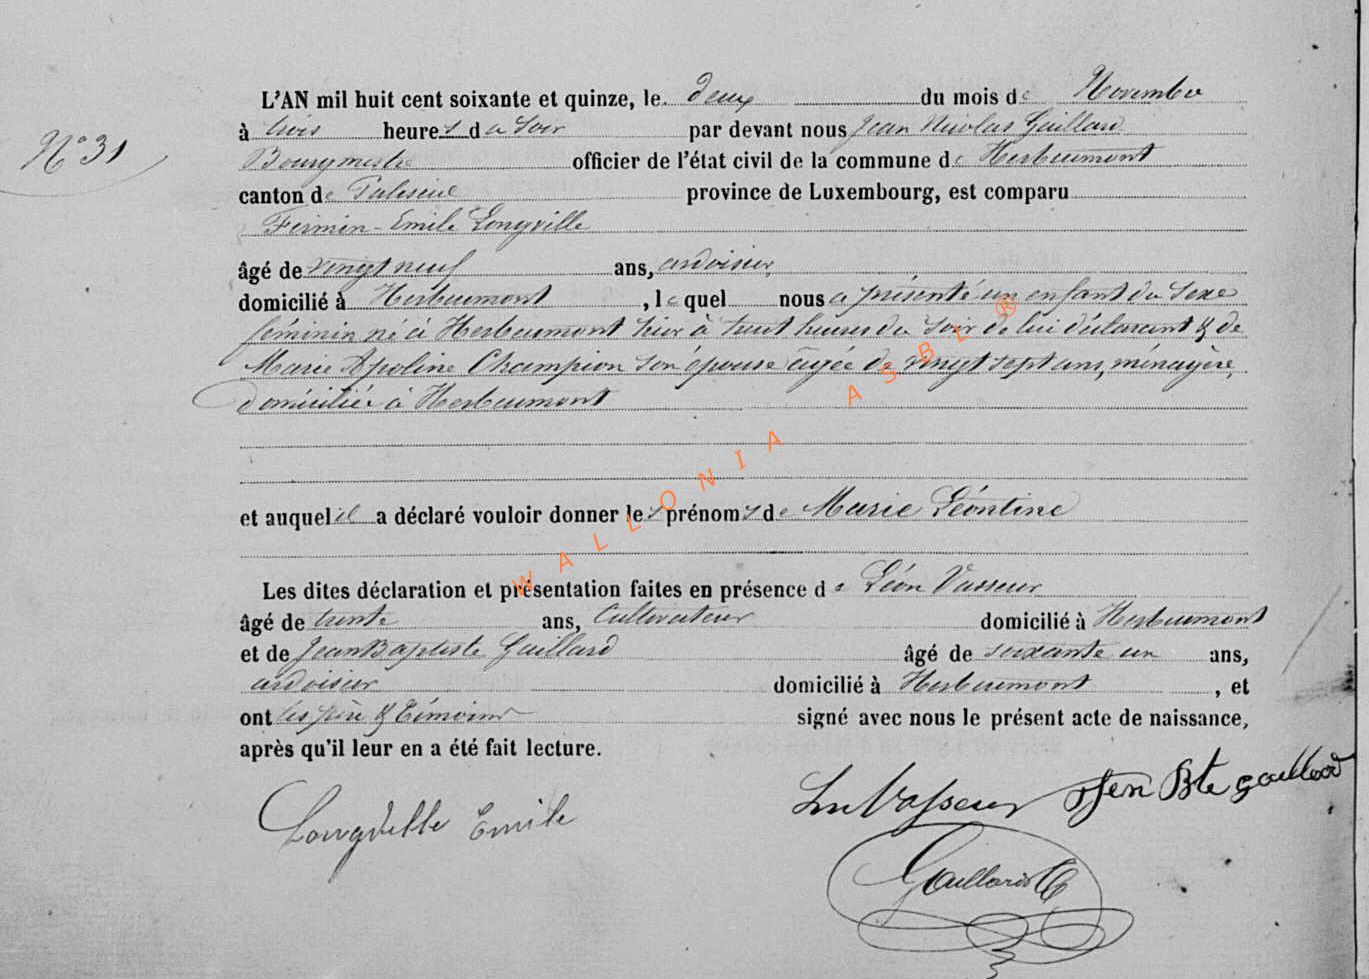 L'AN mil huit cent soixante et quinze, le deux du mois de Novembre
N° 31
à trois heures du soir par devant nous Jean Nicolas Gaillard
Bourgmestre officier de l'état civil de la commune de Herbeumont
canton de Paliseul province de Luxembourg, est comparu
Firmin-Emile Longville
âgé de vingt neuf ans, ardoisier
domicilié à Herbeumont, lequel nous a présenté un enfant du sexe
féminin né à Herbeumont hier à huit heures du soir de lui déclarant & de
Marie Apoline Champion son épouse âgée de vingt sept ans, ménagère,
domiciliée à Herbeumont
et auquel il a déclaré vouloir donner les prénoms de Marie Léontine
Les dites déclaration et présentation faites en présence de Léon Vasseur
âgé de trente ans, Cultivateur domicilié à Herbeumont
et de Jean Baptiste Gaillard âgé de soixante un ans,
ardoisier domicilié à Herbeumont, et
ont les père & témoins signé avec nous le présent acte de naissance,
après qu'il leur en a été fait lecture.
Longville Emile
Vasseur Jen Bte gaillard
Gaillard
WALLONIA ASBL ®